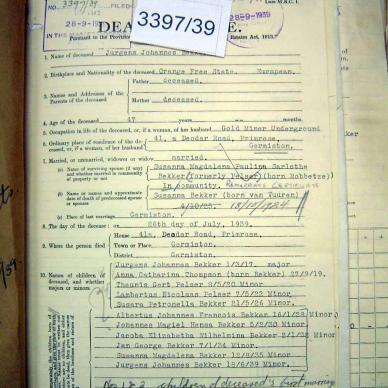 3397/39
FILED
28-9-1939
28-9-1939
3397/39
DEA E.
Pursuant to the Provisions Estates Act, 1913."
1. Name of deceased Jurgens Johannes Bekker
2. Birthplace and Nationality of the deceased Orange Free State. European.
3. Names and Addresses of the Parents of the deceased
Father deceased.
Mother deceased.
4. Age of the deceased 47 years months
5. Occupation in life of the deceased, or, if a woman, of her husband Gold Miner Underground
6. Ordinary place of residence of the deceased, or, if a woman, of her husband 41, a Deodar Road, Primrose,
Germiston.
7. Married or unmarried, widower or widow married.
(a) Name of surviving spouse (if any) and whether married in community of property or not
Susanna Magdalena Paulina Carlothe
Bekker (formerly Pelser) (born Robbetze)
In community,
(b) Name or names and approximate date of death of predeceased spouse or spouses
Susanna Bekker (born van Vuuren)
13/10/1934
(c) Place of last marriage Germiston.
8. The day of the decease: on the 26th day of July, 1939.
9. Where the person died
House 41a, Deodar Road, Primrose.
Town or Place Germiston.
District Germiston.
10. Names of children of deceased, and whether majors or minors
Jurgens Johannes Bekker 1/3/17. major
Anna Catharina Thompson (born Bekker) 27/9/19.
Thunis Gert Pelser 8/5/20 Minor
Lambertus Nicolaas Pelser 7/5/22 Minor
Susara Petronella Bekker 21/5/26 Minor.
Albertus Johannes Francois Bekker 16/1/28 Minor
Johannes Magiel Hensa Bekker 5/2/30 Minor.
Jacoba Elizabetha Wilhelmina Bekker 2/1/32 Minor
Jan George Bekker 7/1/34 Minor.
Susanna Magdalena Bekker 12/8/35 Minor
Jurgen Johannes Bekker 18/6/39 Minor.
No 1 & 2 children of deceased's first marriage